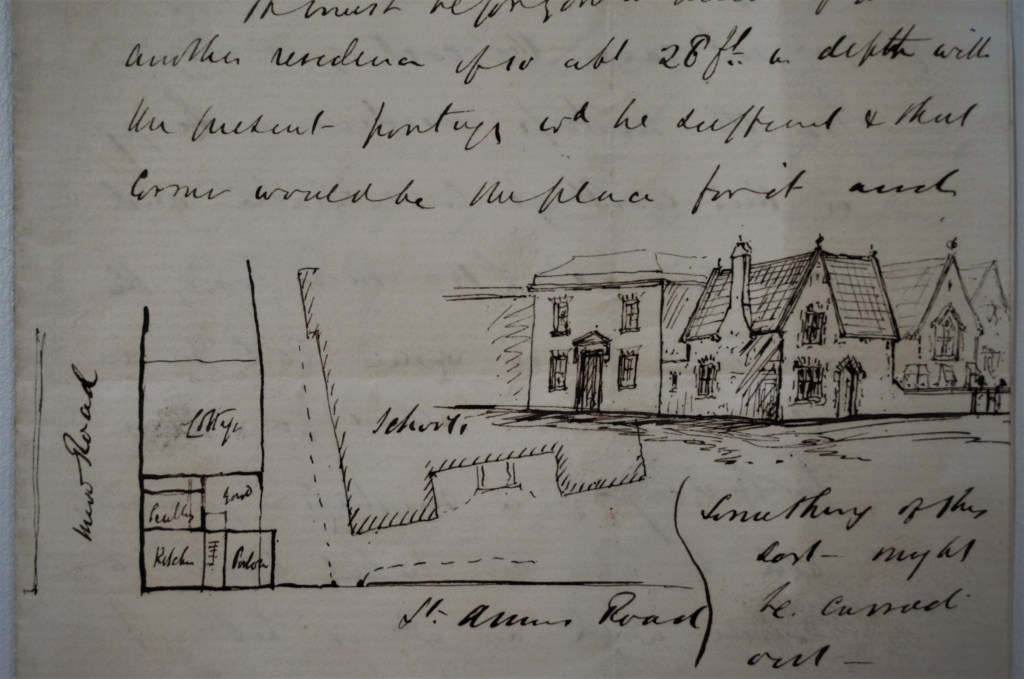 another residence of so abt 28 ft. in depth with
the present frontage wd be sufficient & that
Corner would be the place for it and
New Road
Cottage
School.
Yard
Scullery
Kitchen
Parlor
St. Anns Road
Something of this
sort – might
be carried
out –